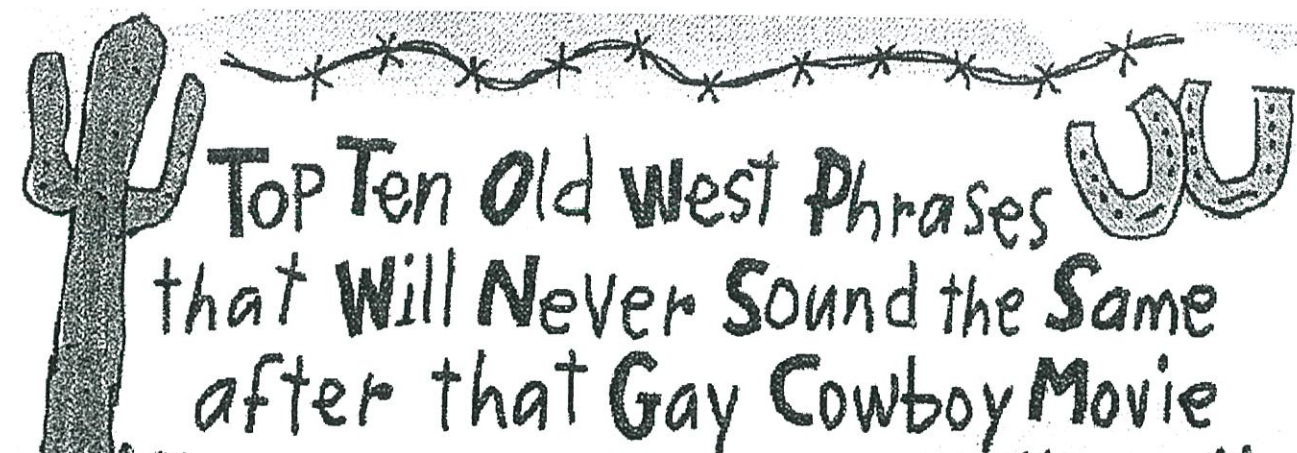 Top Ten Old West Phrases
that Will Never Sound the Same
after that Gay Cowboy Movie